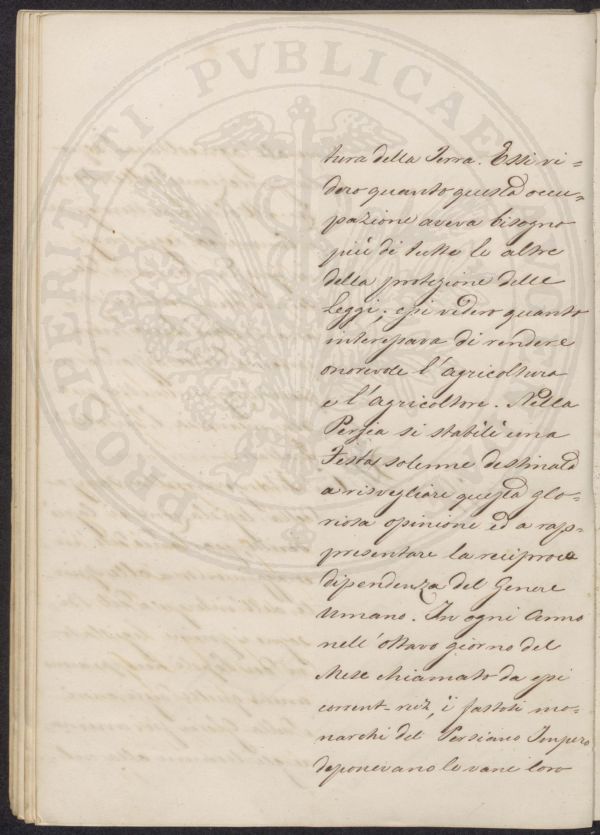 PROSPERITATI PVBLICAE
tura della Terra. Essi vi=
dero quanto questa occu=
pazione aveva bisogno
più di tutte le altre
della protezione delle
Leggi; essi videro quanto
interessava di rendere
onorevole l'agricoltura
e l'agricoltore. Nella
Persia si stabilì una
Festa solenne destinata
a risvegliare questa glo=
riosa opinione ed a rap=
presentare la reciproca
dipendenza del Genere
umano. In ogni Anno
nell'ottavo giorno del
Mese chiamato da essi
corrent-ruz, i fastosi mo=
narchi del Persiano Impero
deponevano le vane loro